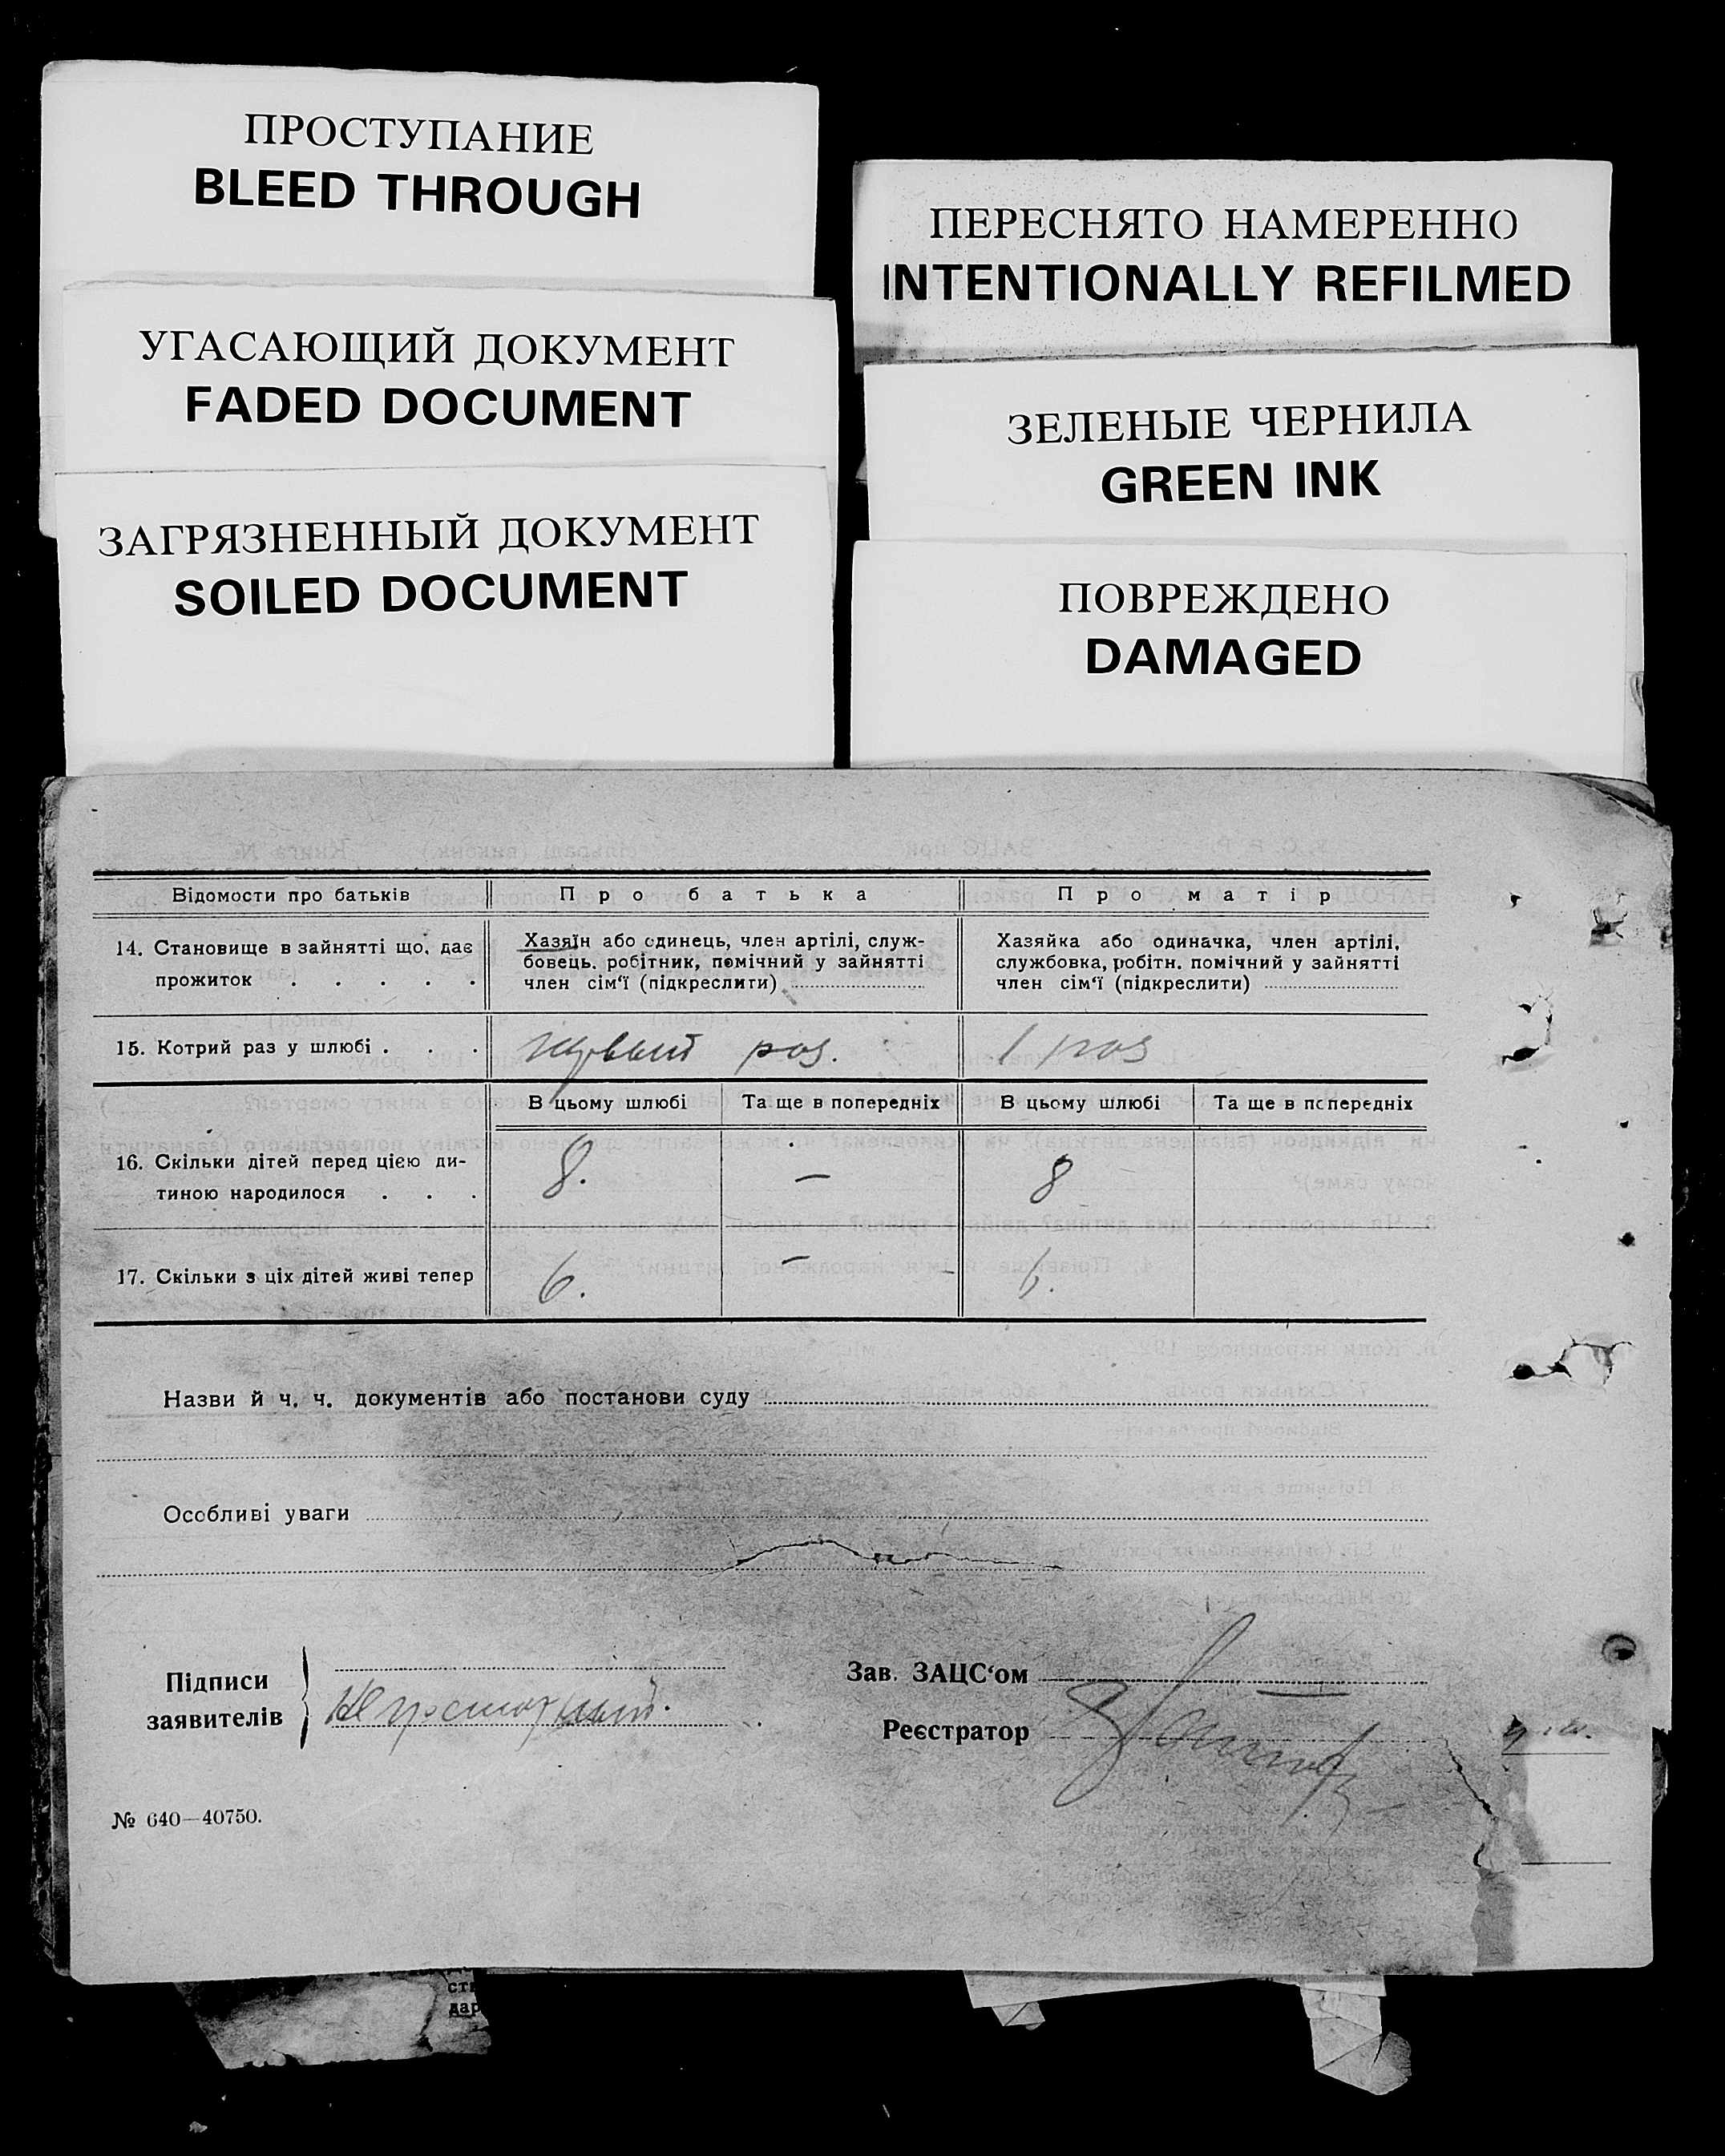 ПРОСТУПАНИЕ
BLEED THROUGH
УГАСАЮЩИЙ ДОКУМЕНТ
FADED DOCUMENT
ЗАГРЯЗНЕННЫЙ ДОКУМЕНТ
SOILED DOCUMENT
ПЕРЕСНЯТО НАМЕРЕННО
INTENTIONALLY REFILMED
ЗЕЛЕНЫЕ ЧЕРНИЛА
GREEN INK
ПОВРЕЖДЕНО
DAMAGED
Відомости про батьків Про батька Про матір
14. Становище в зайнятті що, дає
прожиток . . . . .
Хазяїн або одинець, член артілі, служ-
бовець, робітник, помічний у зайнятті
член сім'ї (підкреслити)
Хазяйка або одиначка, член артілі,
службовка, робітн. помічний у зайнятті
член сім'ї (підкреслити)
15. Котрий раз у шлюбі . . . первый раз. 1 раз
В цьому шлюбі Та ще в попередніх В цьому шлюбі Та ще в попередніх
16. Скільки дітей перед цією ди-
тиною народилося . . . 8. – 8
17. Скільки з ціх дітей живі тепер 6. – 6.
Назви й ч. ч. документів або постанови суду
Особливі уваги
Підписи
заявителів
Зав. ЗАЦС'ом
Реєстратор
№ 640—40750.
ств
дар